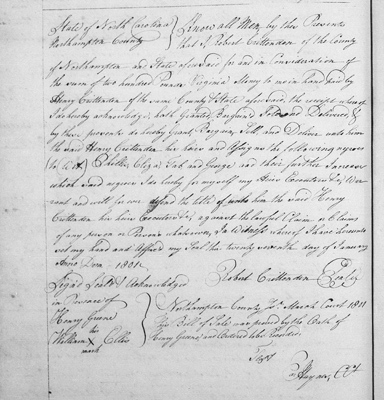 State of North Carolina } Know all Men by these Presents
Northampton County } that I Robert Crittendon of the County
of Northampton and State aforesaid for and in Consideration of
the sum of two hundred Pounds Virginia Money to me in hand paid by
Henry Crittendon of the same County & State aforesaid, the receipt whereof
I do hereby acknowledge, hath granted, Bargained Sold and Delivered, &
by these presents do hereby Grant, Bargain, Sell, and Deliver unto him
the said Henry Crittendon his heirs and assigns the following negroes
to wit, Phillis, Eliza, Jack and George and their further Increase
which said negroes I do hereby for myself my Heirs Executors &c, War
rant and will for ever defend the title of unto him the said Henry
Crittendon his heirs Executors &c, against the lawful Claim or Claims
of any person or Persons whatsoever, In Witness whereof I have hereunto
set my hand and affixed my Seal this twenty seventh day of January
Anno Dom 1801.
Sign'd Seal'd & Acknowledged } Robert Crittendon Seal
in Presence of
Henry Greene
William his X mark Ellis
Northampton County Sc. March Court 1801
This Bill of Sale was proved by the Oath of
Henry Greene and Ordered to be Recorded.
Test
Haynes, CC